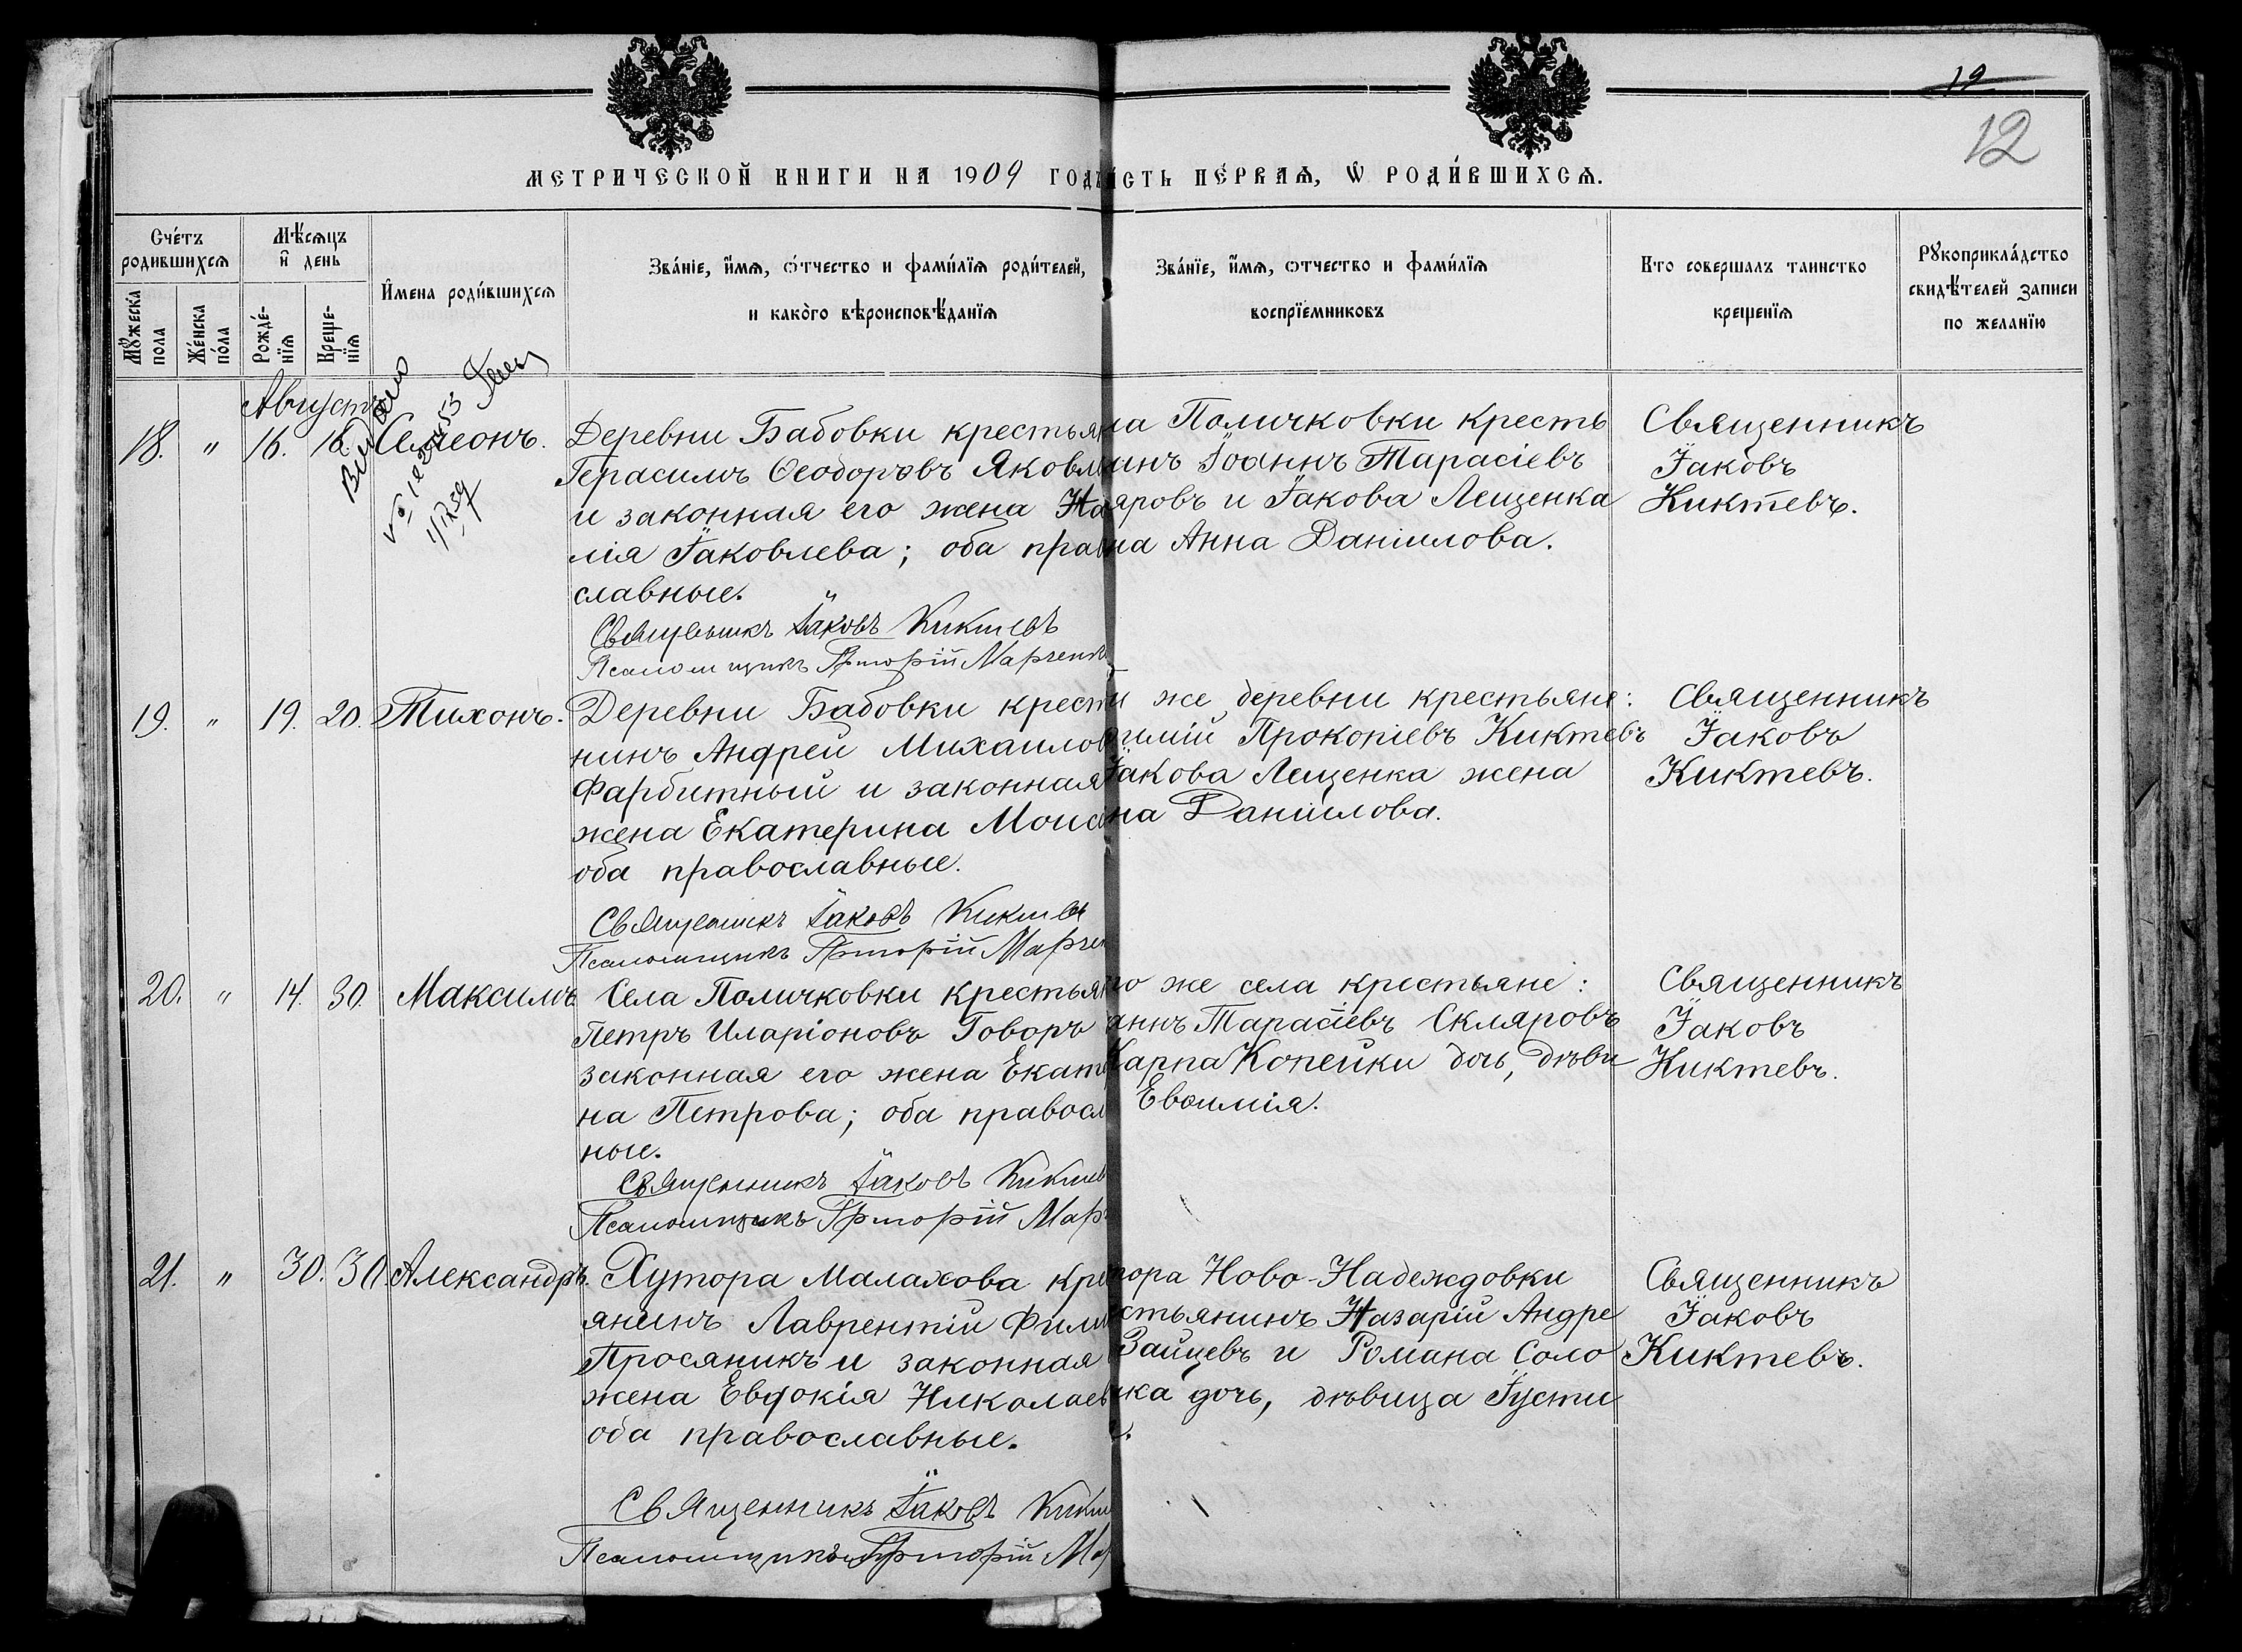 19
12
МЕТРИЧЕСКОЙ КНИГИ НА 1909 ГОДЪ
ЧАСТЬ ПЕ́РВАѦ, Ѽ РОДИ́ВШИХСѦ.
Сче́тъ родившихсѧ
Мѣ́сѧцъ и҆ день
И҆мена роди́вшихсѧ
Зва́нїе, и҆́мѧ, о҆́тчество и фами́лїѧ роди́телей,
и како́го вѣроисповѣ́данїѧ
Зва́нїе, и҆́мѧ, ѻтчество и фамилїѧ
воспрїе́мниковъ
Кто совершалъ таинство
крещенїѧ
Рꙋкоприкла́дство
свидѣ́телей записи
по желанїю
Мꙋжеска пола
Же́нска по́ла
Рожде́нїѧ
Креще́нїѧ
Августъ
18. " 16. 16. Симеонъ.
Деревни Бабовки крестья
Герасимъ Ѳеодоровъ Яковл
и законная его жена На
лія Іаковлева; оба прав
славные.
Священникъ Іаковъ Киктевъ
Псаломщикъ Григорій Марченк
на Поличковки кресть
инъ Іоаннъ Тарасіевъ
яровъ и Іакова Лещенка
на Анна Даніилова.
Священникъ
Іаковъ
Киктевъ.
19. " 19. 20. Тихонъ.
Деревни Бабовки крест
нинъ Андрей Михаилов
Фарбитный и законная
жена Екатерина Моисе
оба православные.
Священникъ Іаковъ Киктев
Псаломщикъ Григорій Марчен
и же деревни крестьяне:
имій Прокопіевъ Киктевъ
Іакова Лещенка жена
на Даніилова.
Священникъ
Іаковъ
Киктевъ.
20. " 14. 30. Максимъ
Села Поличковки крестья
Петръ Иларіоновъ Говоръ
законная его жена Екате
на Петрова; оба правосл
ные.
Священникъ Іаковъ Киктев
Псаломщикъ Григорій Мар
го же села крестьяне:
аннъ Тарасіевъ Скляровъ
Карпа Копейки дочь, дѣви
Евѳимія.
Священникъ
Іаковъ
Киктевъ.
21. " 30. 30. Александръ.
Хутора Малахова кре
янинъ Лаврентій Фили
Просяникъ и законная
жена Евдокія Николаев
оба православные.
Священникъ Іаковъ Кикт
Псаломщикъ Григорій Мар
тора Ново-Надеждовки
стьянинъ Назарій Андре
Зайцевъ и Романа Соло
ика дочь, дѣвица Іусти
Священникъ
Іаковъ
Киктевъ.